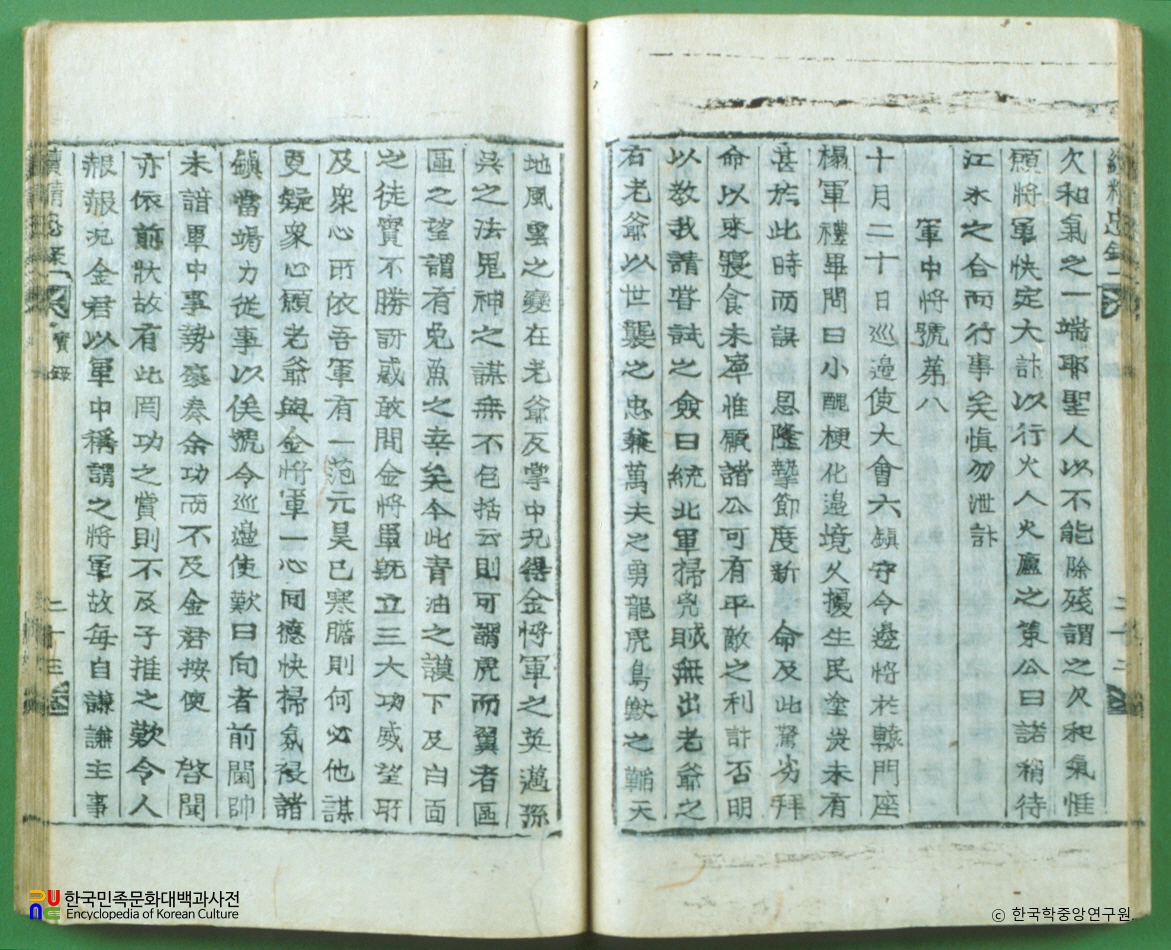 欠和氣之一端耶聖人以不能除殘謂之欠和氣惟
願將軍快定大計以行火人火廬之策公曰諾稍待
江氷之合而行事矣愼勿泄計
軍中將號第八
十月二十日巡邊使大會六鎭守令邊將於轅門座
榻軍禮畢問曰小醜梗化邊境久擾生民塗炭未有
甚於此時而誤 恩隆摯節度新 命及此駑劣拜
命以來寢食未寧惟願諸公可有平敵之利計否明
以敎我請嘗試之僉曰統北軍掃兇賊無出老爺之
右老爺以世襲之忠兼萬夫之勇龍虎鳥獸之韜天
地風雲之變在老爺反掌中況得金將軍之英邁孫
吳之法鬼神之謀無不包括云則可謂虎而翼者區
區之望謂有兎魚之幸矣今此靑油之謨下及白面
之徒實不勝訝惑敢聞金將軍旣立三大功威望所
及衆心所依吾軍有一范元昊已寒膽則何必他謀
更疑衆心願老爺與金將軍一心同德快掃氛祲諸
鎭當竭力從事以俟號令巡邊使歎曰向者前閫帥
未諳軍中事勢褒奏余功而不及金君按使 啓聞
亦依前狀故有此罔功之賞則不及子推之歎令人
赧赧況金君以軍中稱謂之將軍故每自謙謙主事
二十三
한국민족문화대백과사전
Encyclopedia of Korean Culture
© 한국학중앙연구원